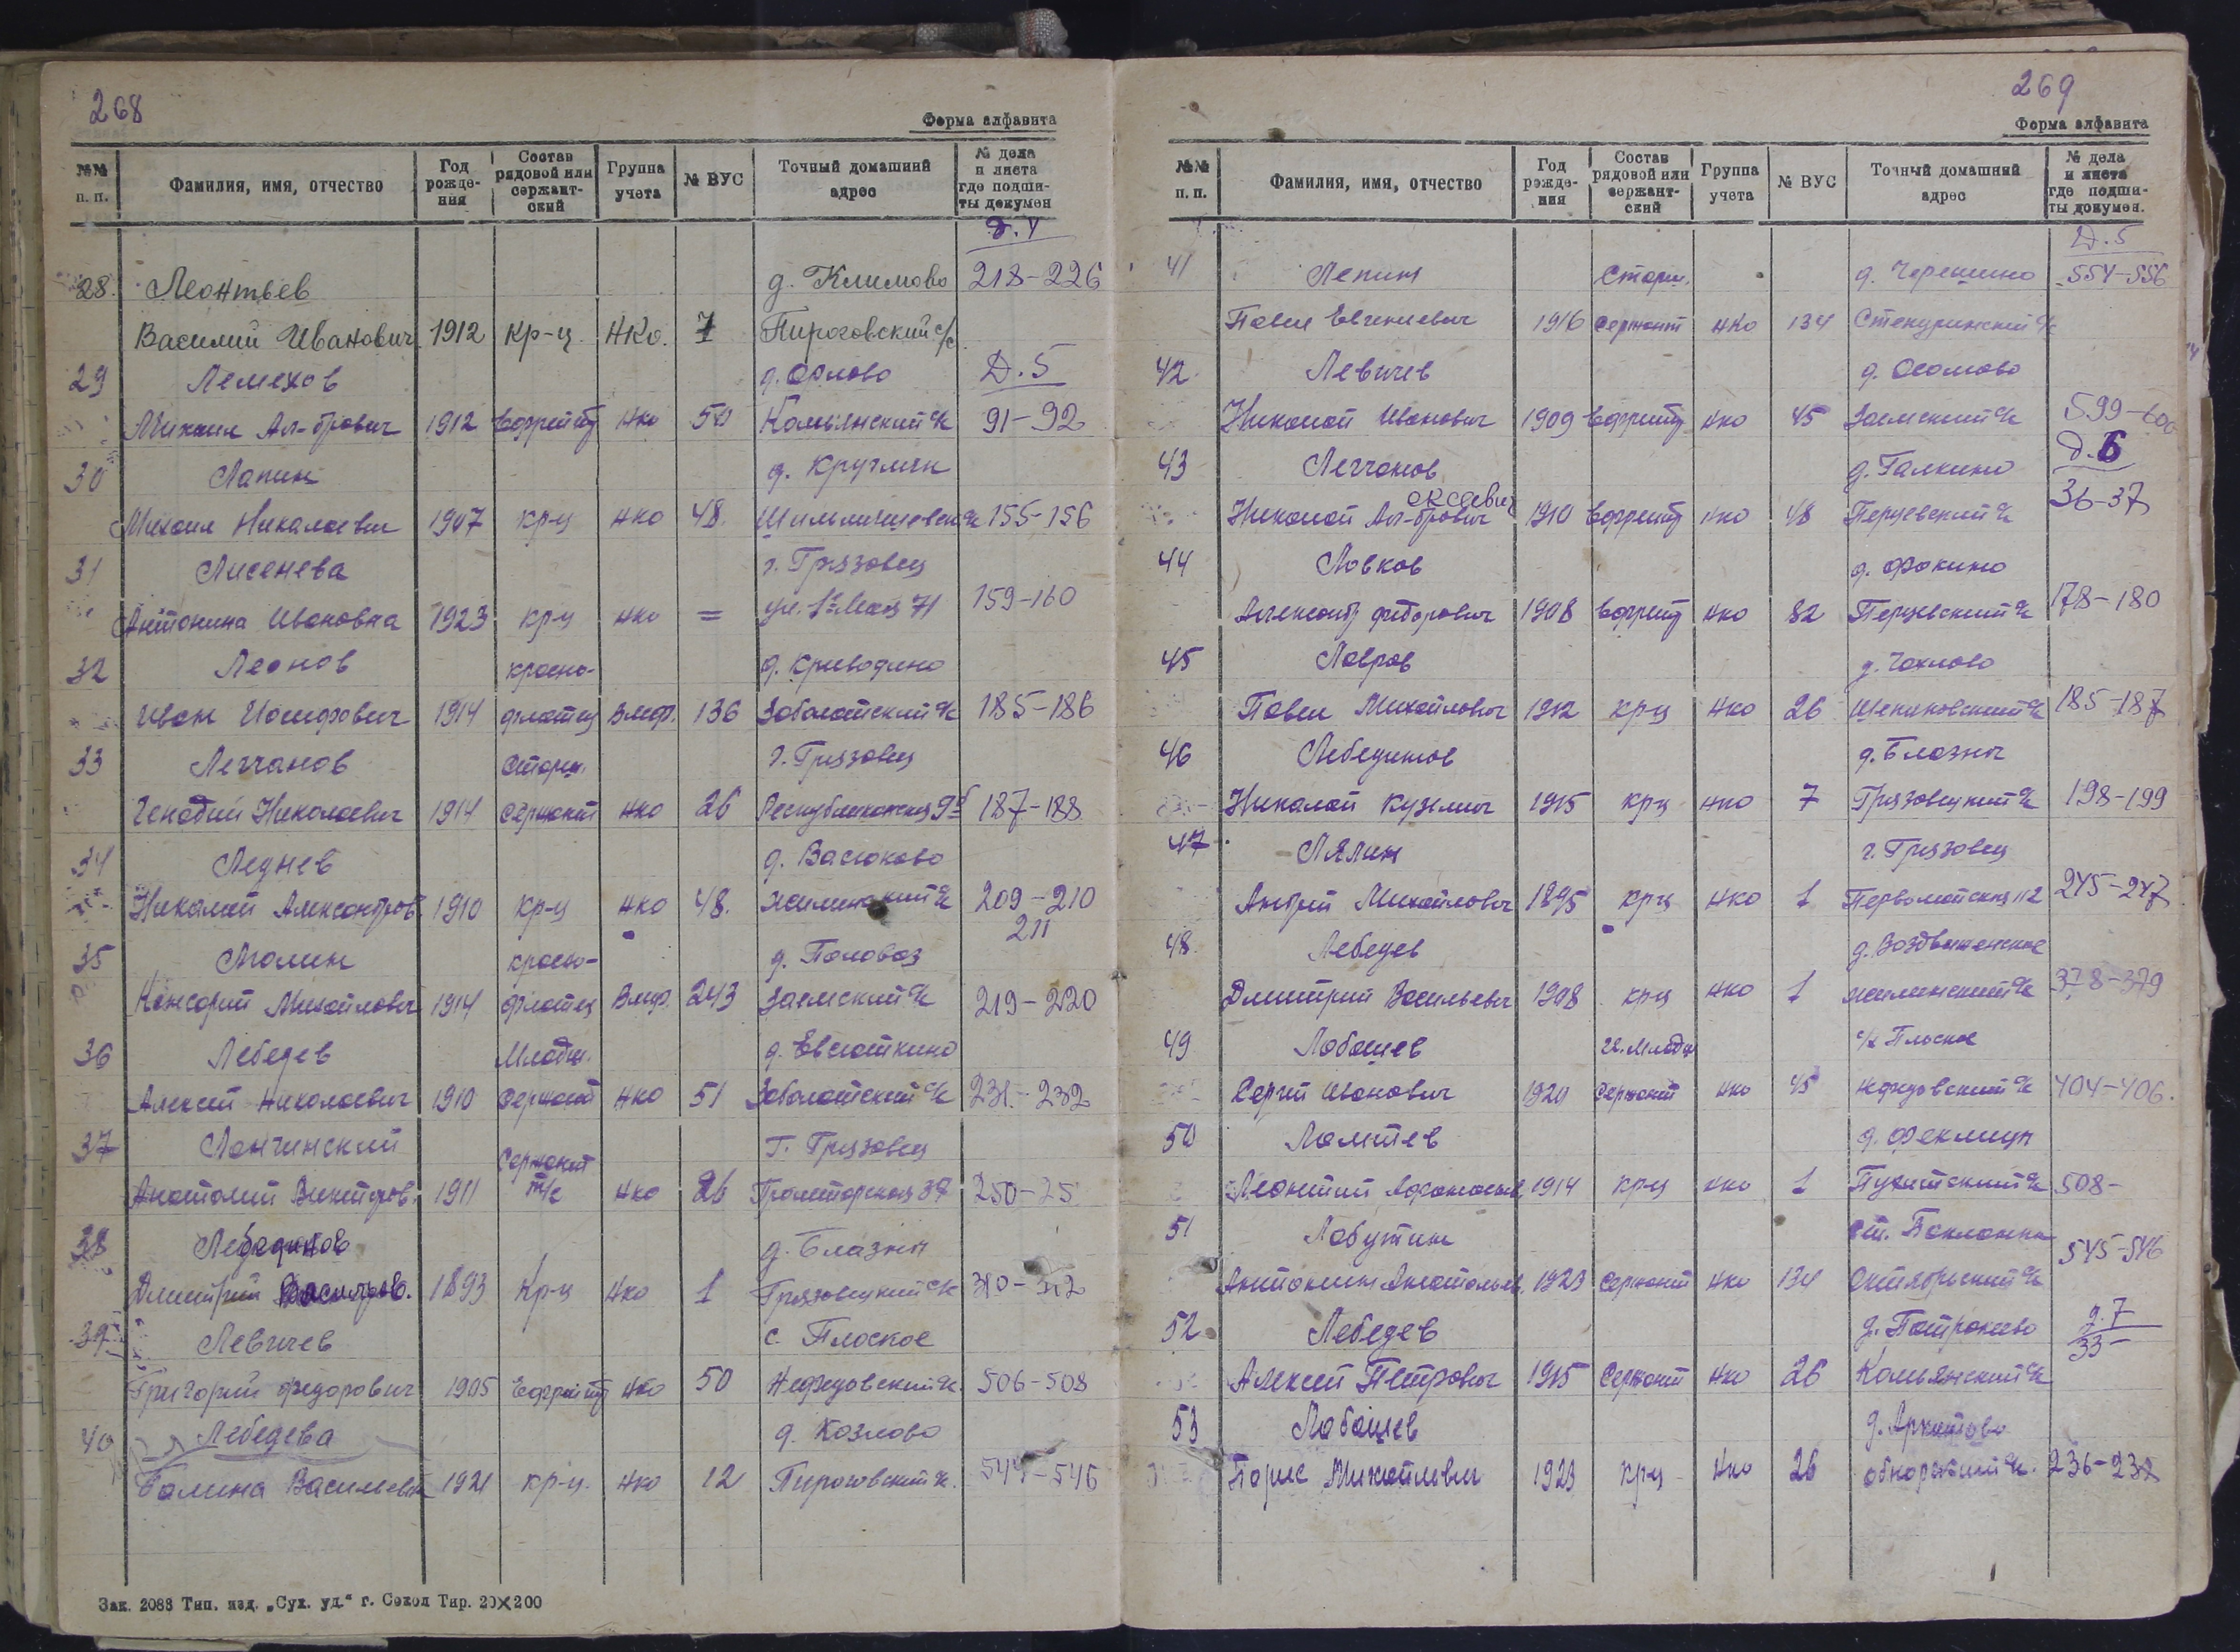 268
Форма алфавита
№№ п. п. | Фамилия, имя, отчество | Год рождения | Состав рядовой или сержантский | Группа учета | № ВУС | Точный домашний адрес | № дела и листа где подшиты докумен
Д. 4
28. Леонтьев д. Климово 218-226
Василий Иванович 1912 кр-ц НКО. 1 Пироговский с/с
29 Лемехов д. Орлово Д. 5
Михаил Ал-дрович 1912 Ефрейтр НКО 50 Комьянский с/с 91-92
30 Лапин д. Круглин
Михаил Николаевич 1907 кр-ц НКО 48. 155-156
31 Лисенева г. Грязовец
Антонина Ивановна 1923 кр-ц НКО = ул. 1го Мая 71 159-160
32 Леонов красно- д. Криводино
Иван Иосифович 1914 флотец Вмф. 136 Заболотский с/с 185-186
33 Легчанов Старш. г. Грязовец
Генадий Николаевич 1914 Сержант НКО 26 Республиканская 187-188
34 Леднев д. Васюково
Николай Александров. 1910 кр-ц НКО 48. 209-210
211
35 красно- д. Половоз
Михайлович 1914 флотец Вмф. 243 Заемский с/с 219-220
36 Лебедев Младш. д. Евсюткино
Алексей Николаевич 1910 Сержант НКО 51 Заболотский с/с 231-232
37 Лончинский Сержант г. Грязовец
Анатолий Виктров. 1911 т/с НКО 26 Пролеторская 37 250-25
38 Лебединов д. Блазны
Дмитрий 1893 Кр-ц НКО 1 Грязовецкий с/с 310-312
39 Левичев с. Плоское
Григорий Федорович 1905 Ефрейтр НКО 50 Нефедовский с/с. 506-508
40 Лебедева д. Козлово
Галина Васильевна 1921 кр-ц. НКО 12 Пироговский с/с. 544-546
Зак. 2088 Тип. изд. „Сух. уд." г. Сокол Тир. 20×200
269
Форма алфавита
№№ п. п. | Фамилия, имя, отчество | Год рождения | Состав рядовой или сержантский | Группа учета | № ВУС | Точный домашний адрес | № дела и листа где подшиты докумен.
Д. 5
41 Лепин Старш. 554-556
Павел Евгениевич 1916 Сержант НКО 134 с/с
42. Левичев
Николай Иванович 1909 Ефрейтр НКО 45 Заемский с/с 599-600
Д. 6
43 Легчанов д. Галкино
Николай Ал-дрович ексеевич 1910 Ефрейтр НКО 48 Перцевский с/с 36-37
44 Ловков д. Фокино
Александр Федорович 1908 Ефрейтр НКО 82 Перцевский с/с 178-180
45 Лавров д. Чахлово
Павел Михайлович 1912 кр-ц НКО 26 с/с 185-187
46 Лебединов д. Блазны
Николай Кузмич 1915 кр-ц НКО 7 Грязовецкий с/с 198-199
47 Лялин г. Грязовец
Андрей Михайлович 1895 кр-ц НКО 1 Первомайская 112 245-247
48. Лебедев д. Воздвиженское
Дмитрий Васильевич 1908 кр-ц НКО 1 378-379
49 Лобашев с/х Плоское
Сергей Иванович 1920 Сержант НКО 45 Нефедовский с/с 404-406.
50 Ломтев
Леонтий Афанасьев. 1914 кр-ц НКО 1 508-
51 Лобутин ст. Бакланка
Антонин Анатольев. 1923 Сержант НКО 134 Октябрьский с/с 545-546
52. Лебедев д. 7
33-
Алексей Петрович 1915 Сержант НКО 26 Комьянский с/с
53 Лобашев
Борис Михайлович 1923 кр-ц НКО 26 Обнорский с/с. 236-238